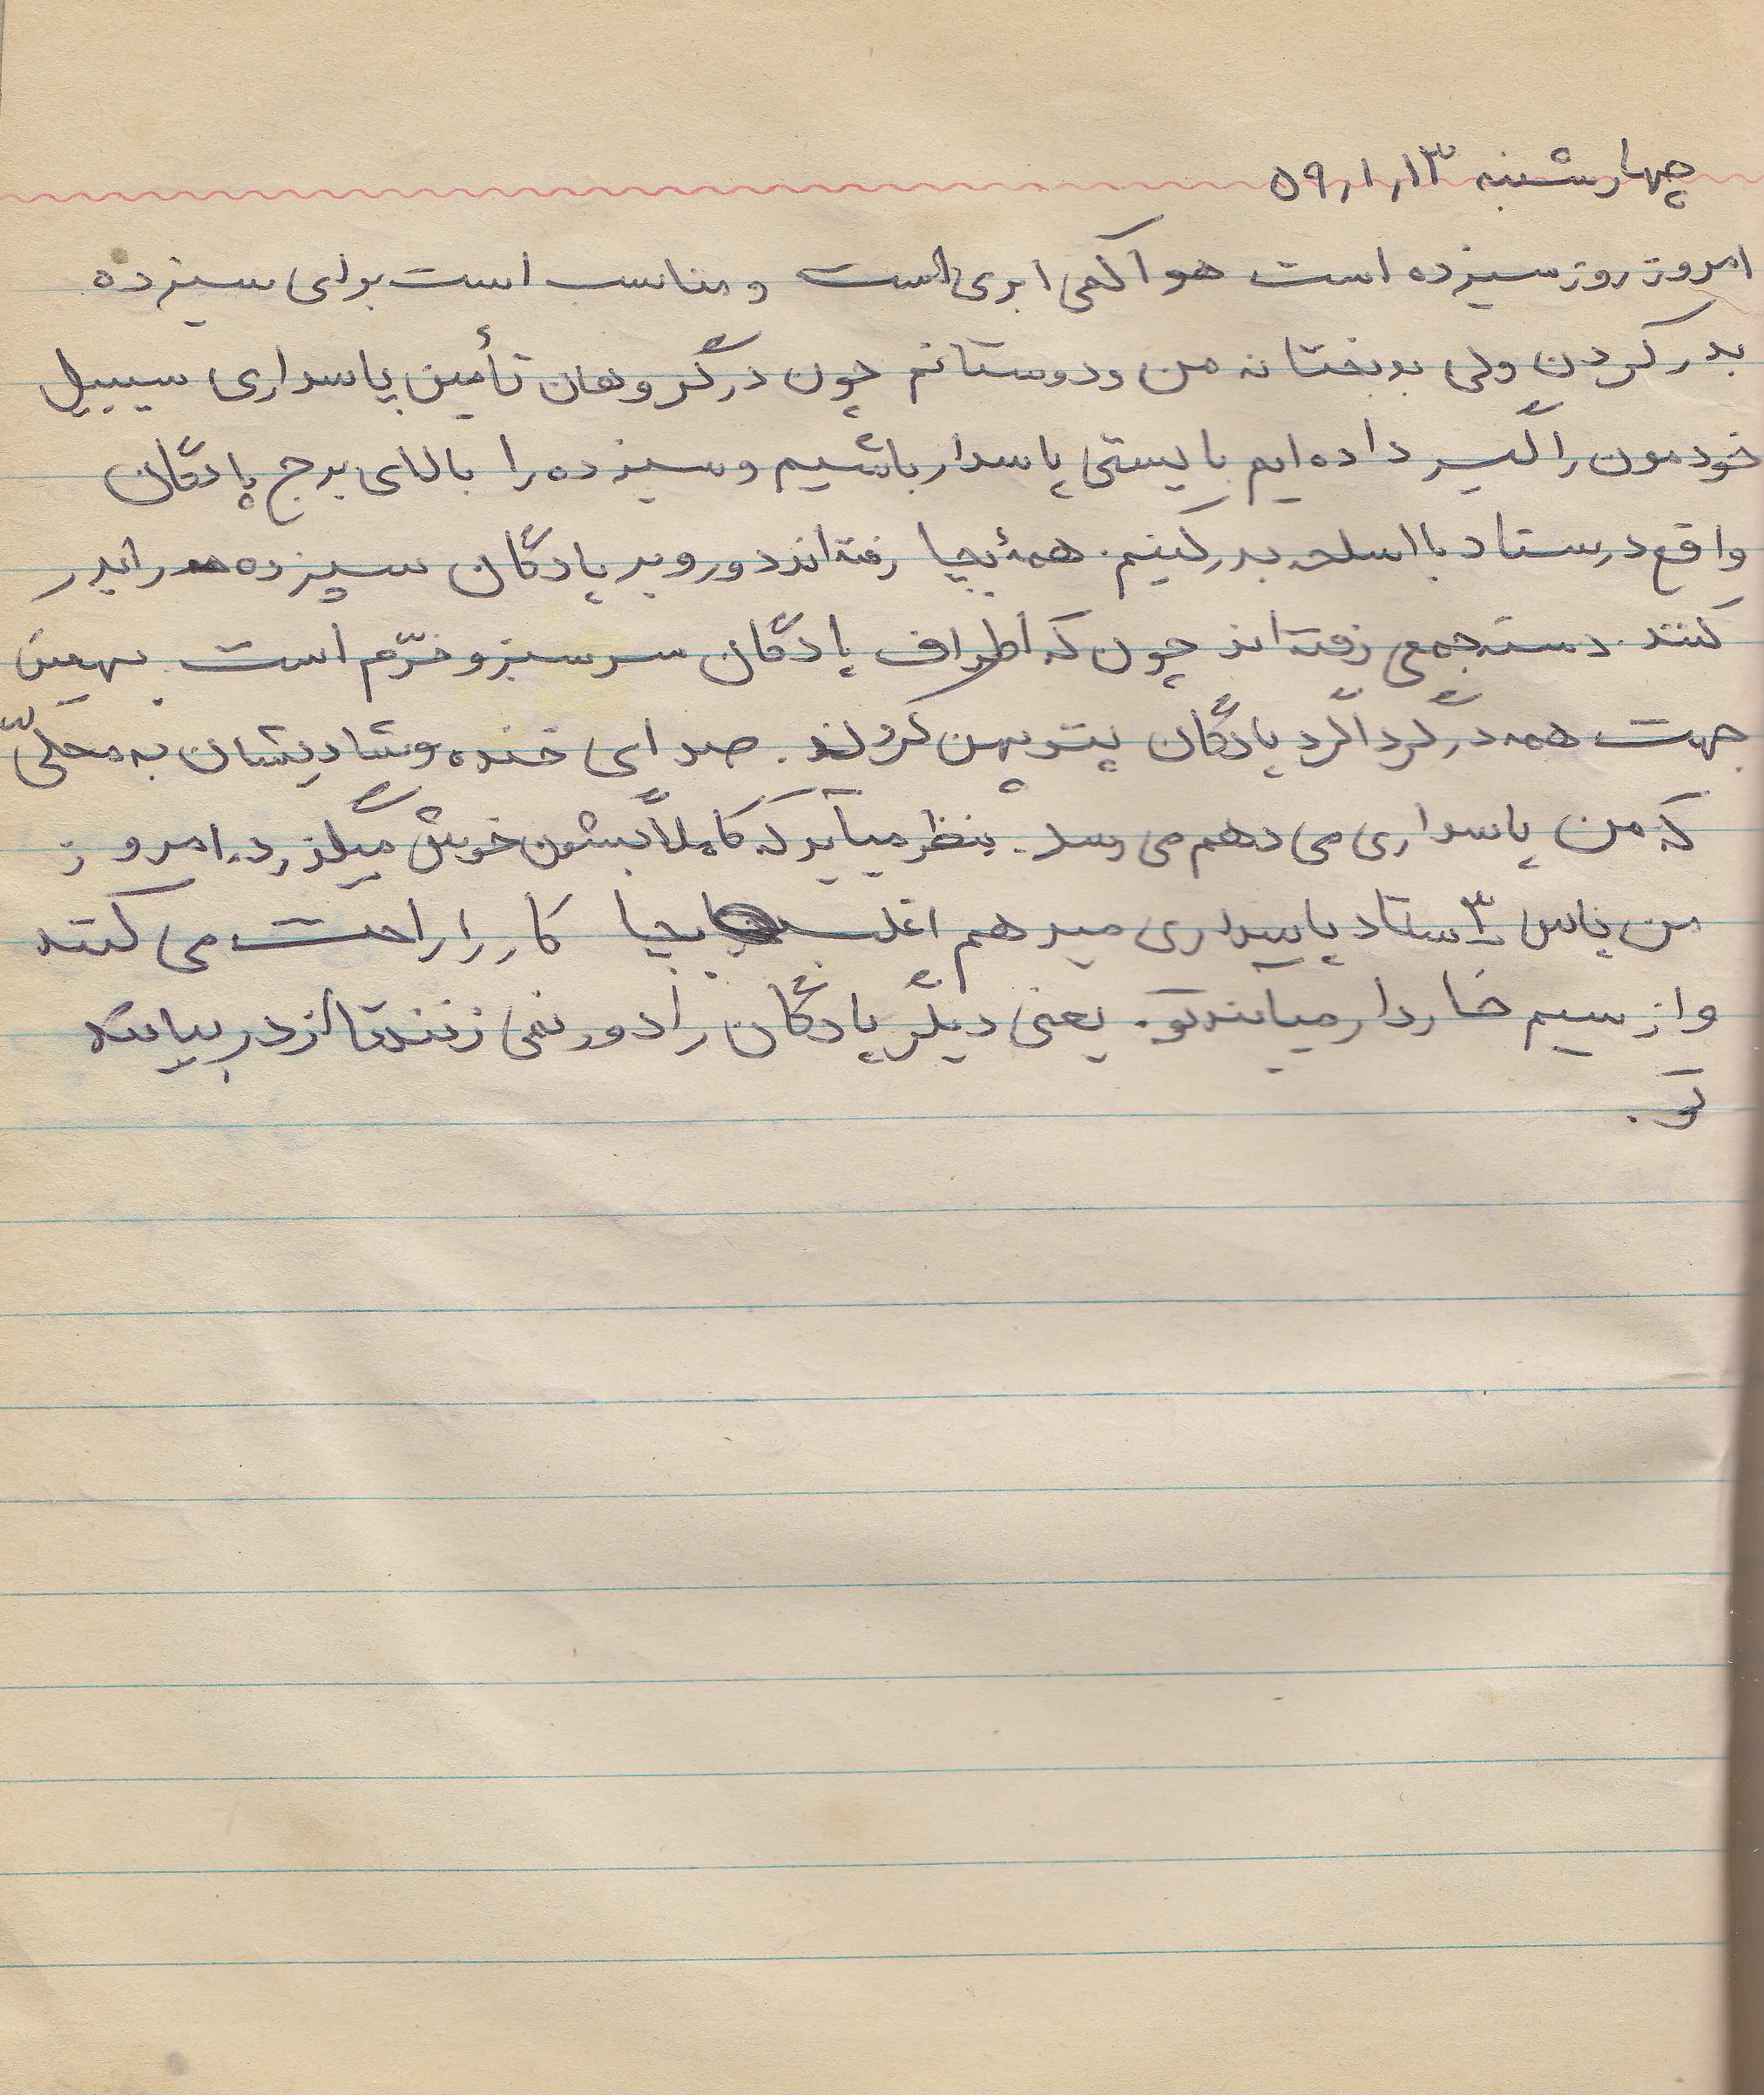 چهارشنبه ۵۹٫۱٫۱۳
امروز روز سیزده است هوا کمی ابری است و مناسب است برای سیزده
بدر کردن ولی بدبختانه من و دوستانم چون در گروهان تأمین پاسداری سیبیل
خودمون را گیر داده ایم بایستی پاسدار باشیم و سیزده را بالای برج پادگان
واقع در ستاد با اسلحه بدر کنیم. همهٔ بچا رفته اند دور و بر پادگان سیزده را بدر
کنند. دسته جمعی رفته اند چون که اطراف پادگان سرسبز و خرّم است بهمین
جهت همه در گرداگرد پادگان پتو پهن کردند. صدای خنده و شادیشان به محلّی
که من پاسداری می دهم می رسد. بنظر میآید که کاملاً بشون خوش میگذرد. امروز
من پاس ۳ ستاد پاسداری میدهم اغلب بچا کار را راحت می کنند
و از سیم خاردار میآیند تو. یعنی دیگر پادگان را دور نمی زنند تا از در بیایند
تو.